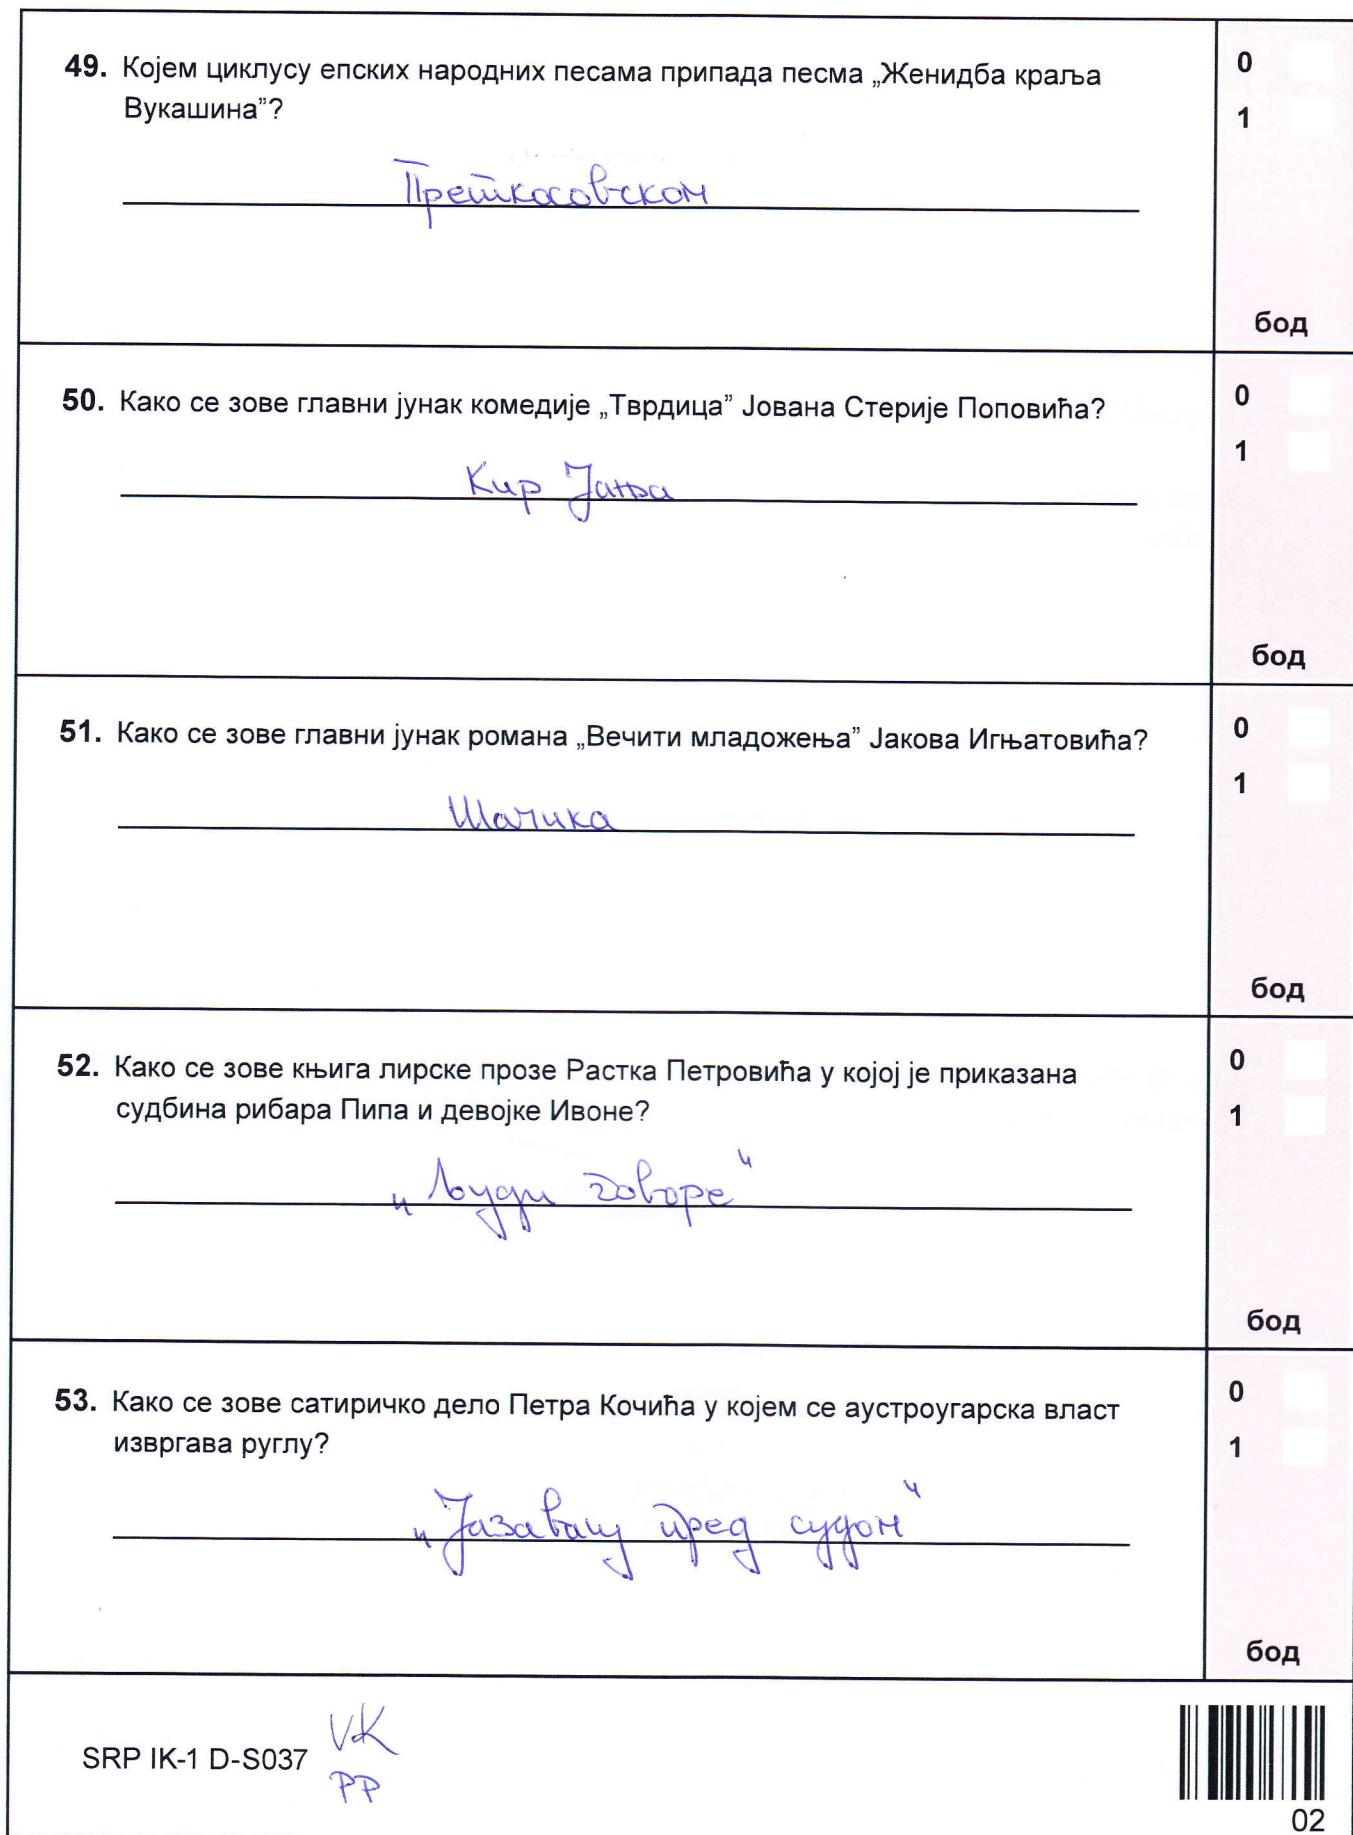 49. Којем циклусу епских народних песама припада песма „Женидба краља
Вукашина”?
0
1
Преткосовском
бод
50. Како се зове главни јунак комедије „Тврдица” Јована Стерије Поповића?
0
1
Кир Јања
бод
51. Како се зове главни јунак романа „Вечити младожења” Јакова Игњатовића?
0
1
Шамика
бод
52. Како се зове књига лирске прозе Растка Петровића у којој је приказана
судбина рибара Пипа и девојке Ивоне?
0
1
„Људи говоре“
бод
53. Како се зове сатиричко дело Петра Кочића у којем се аустроугарска власт
извргава руглу?
0
1
„Јазавац пред судом“
бод
SRP IK-1 D-S037
VK
PP
02